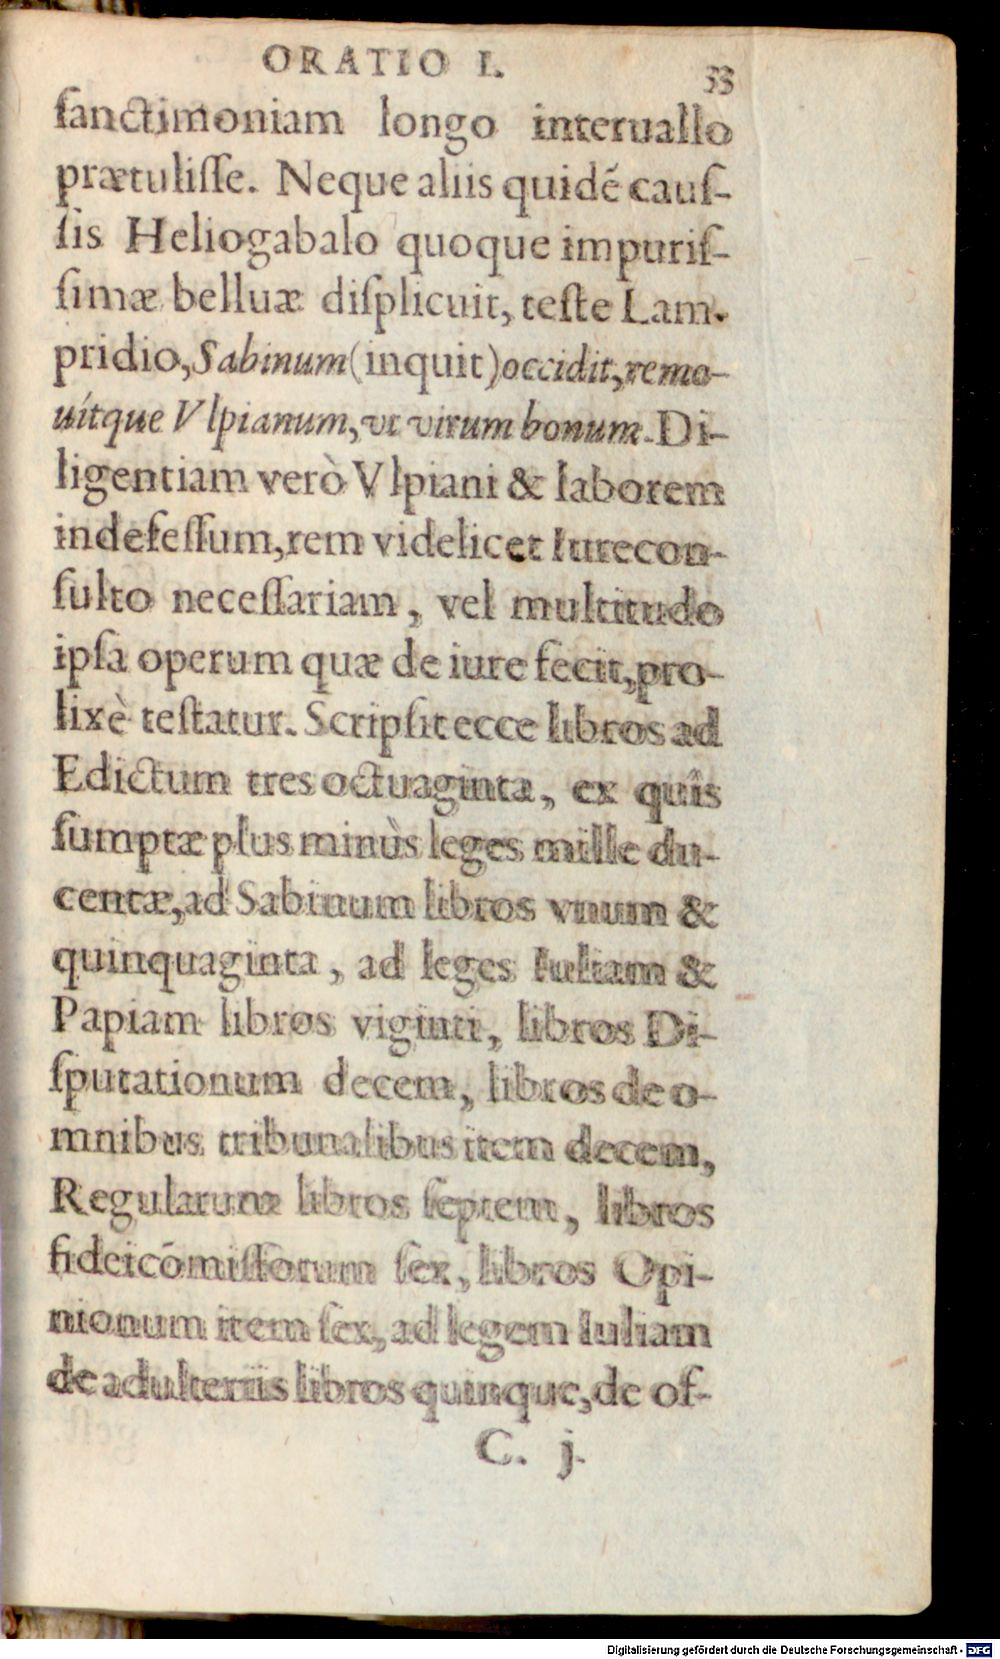 ORATIO I. 33
ſanctimoniam longo interuallo
prætuliſſe. Neque aliis quidē cauſ-
ſis Heliogabalo quoque impuriſ-
ſimæ belluæ diſplicuit, teſte Lam-
pridio, Sabinum (inquit) occidit, remo-
uítque Vlpianum, vt virum bonum. Di-
ligentiam verò Vlpiani & laborem
indefeſſum, rem videlicet Iurecon-
ſulto neceſſariam, vel multitudo
ipſa operum quæ de iure fecit, pro-
lixè teſtatur. Scripſit ecce libros ad
Edictum tres octuaginta, ex quîs
ſumptæ plus minùs leges mille du-
centæ, ad Sabinum libros vnum &
quinquaginta, ad leges Iuliam &
Papiam libros viginti, libros Di-
ſputationum decem, libros de o-
mnibus tribunalibus item decem,
Regularum libros ſeptem, libros
fideicōmiſſorum ſex, libros Opi-
nionum item ſex, ad legem Iuliam
de adulteriis libros quinque, de of-
C. j.
Digitalisierung gefördert durch die Deutsche Forschungsgemeinschaft - DFG